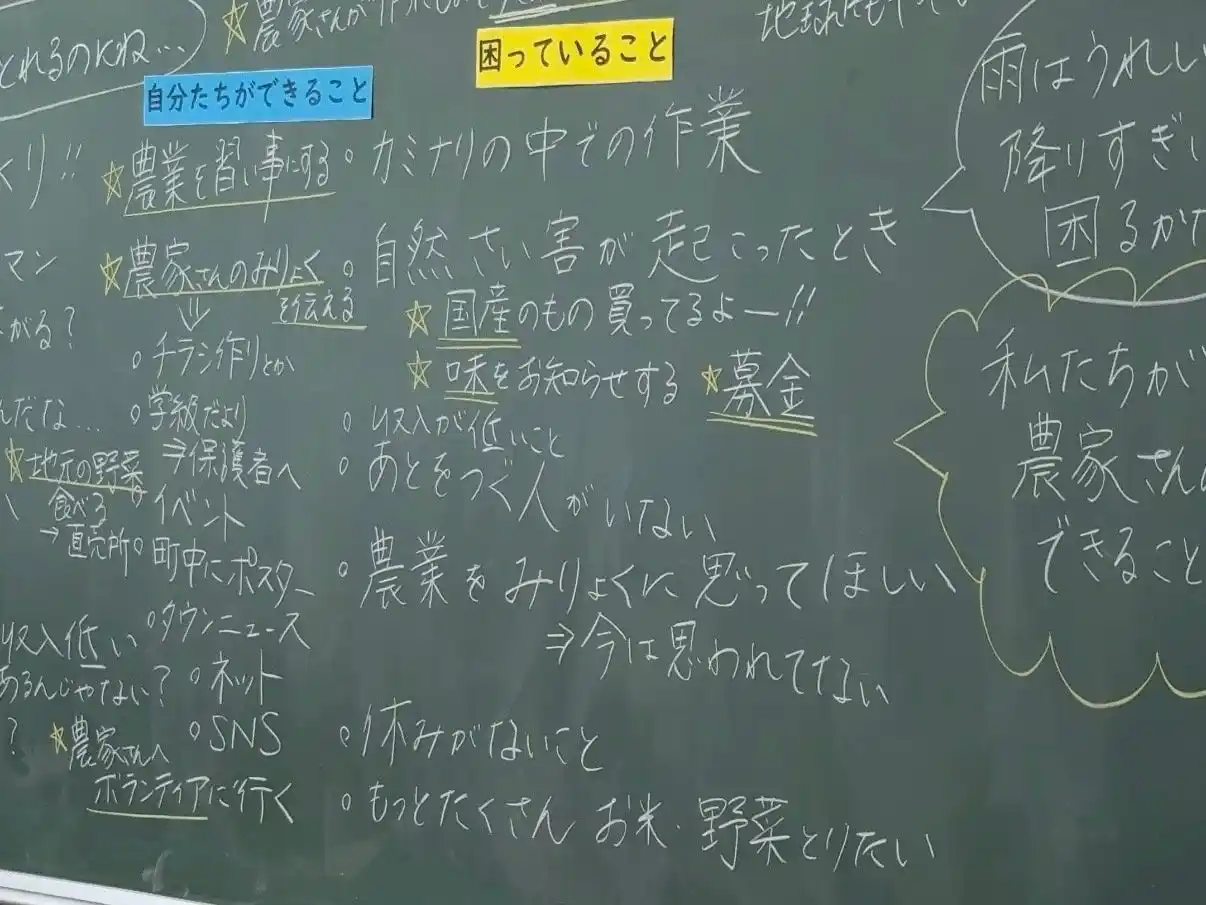 とれるのにね…
☆農家さんが
困っていること
自分たちができること
くり!!
☆農業を習い事にする
。カミナリの中での作業
マン
☆農家さんのみりょく
を伝える
。自然さい害が起こったとき
がる?
。チラシ作りとか
☆国産のもの買ってるよー!!
☆味をお知らせする ☆募金
んだな…
。学級だより
⇒保護者へ
。収入が低いこと
☆地元の野菜
食べる
→直売所
。イベント
。あとをつぐ人がいない
。町中にポスター
。農業をみりょくに思ってほしい
⇒今は思われてない
収入低い
。タウンニュース
あるんじゃない?
。ネット
?
☆農家さんへ
ボランティアに行く
。SNS
。休みがないこと
。もっとたくさんお米・野菜とりたい
雨はうれしい
降りすぎ
困るか
私たちが
農家さん
できること